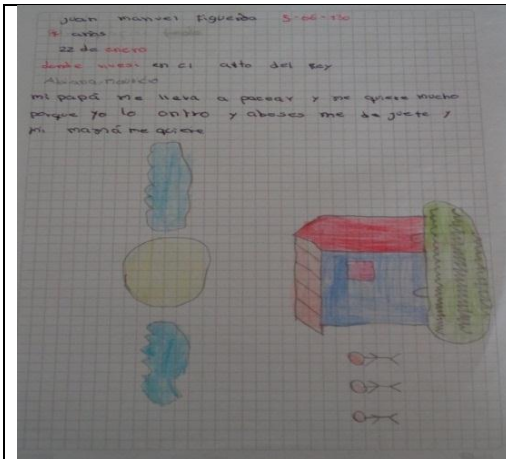 Juan manuel Figueroa 5-06-130
7 años
22 de enero
donde vives en el alto del Rey
mi papá me lleva a pacear y me quiere mucho
porque yo lo ontro y abeses me de juete y
mi mamá me quiere